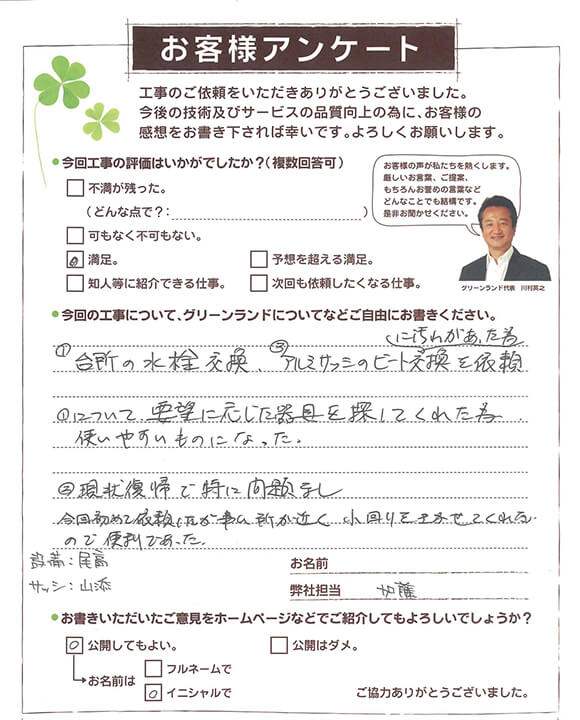 お客様アンケート
工事のご依頼をいただきありがとうございました。
今後の技術及びサービスの品質向上の為に、お客様の
感想をお書き下されば幸いです。よろしくお願いします。
●今回工事の評価はいかがでしたか？(複数回答可)
不満が残った。
(どんな点で？: )
可もなく不可もない。
満足。 予想を超える満足。
知人等に紹介できる仕事。 次回も依頼したくなる仕事。
お客様の声が私たちを熱くします。
厳しいお言葉、ご提案、
もちろんお誉めの言葉など
どんなことでも結構です。
是非お聞かせください。
グリーンランド代表 川村英之
●今回の工事について、グリーンランドについてなどご自由にお書きください。
に汚れがあった為
①台所の水栓交換、②アルミサッシのビート交換を依頼
①について 要望に応じた器具を探してくれた為
使いやすいものになった。
②現状復帰で特に問題なし
今回初めて依頼したが事ム所が近く 小回りをきかせてくれた
ので便利であった。
設備:尾高
サッシ:山添
お名前
弊社担当 加藤
●お書きいただいたご意見をホームページなどでご紹介してもよろしいでしょうか？
公開してもよい。 公開はダメ。
お名前は フルネームで
イニシャルで
ご協力ありがとうございました。